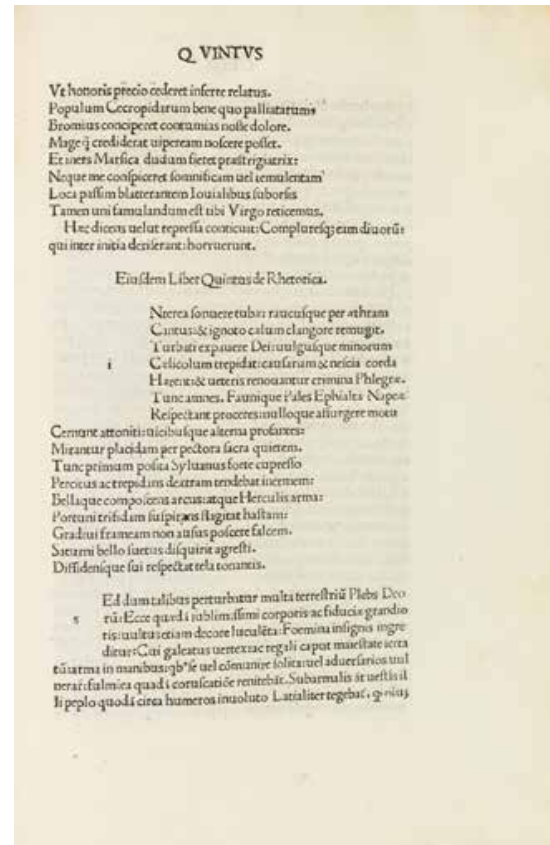 Q VINTVS
Vt honoris precio cederet inferre relatus.
Populum Cecropidarum bene quo palliatarumq;
Bromius conciperet contumias nosse dolore.
Mage q̃ crediderat uipeream noscere posset.
Et iners Marsica dudum fieret præstrigiatrix:
Neque me conspiceret somnificam uel temulentam
Loca passim blatterantem Iouialibus suborsis
Tamen uni famulandum est tibi Virgo reticemus.
Hæc dicens uelut repressa conticuit: Compluresq; eam diuorũ:
qui inter initia deriserant: horruerunt.
Eiusdem Liber Quintus de Rhetorica.
Nterea sonuere tubæ: raucusque per æthram
Cantus: & ignoto cælum clangore remugit.
Turbati expauere Dei: uulgusque minorum
i Cælicolum trepidat: causarum & nescia corda
Hærent: & ueteris renouantur crimina Phlegræ.
Tunc amnes. Faunique Pales Ephialta Napeæ
Respectant proceres: nulloque assurgere motu
Cernunt attoniti: uicibusque alterna profantes:
Mirantur placidam per pectora sacra quietem.
Tunc primum posita Syluanus forte cupresso
Percitus ac trepidans dextram tendebat inermem:
Bellaque composcens arcus: atque Herculis arma:
Portuni trifidam suspirans flagitat hastam:
Gradiui frameam non ausus poscere falcem.
Saturni bello suetus disquirit agresti.
Diffidensque sui respectat tela tonantis.
Ed dum talibus perturbatur multa terrestriũ Plebs Deo
s rũ: Ecce quædã sublimissimi corporis ac fiducia grandio
ris: uultus etiam decore luculẽta: Foemina insignis ingre
ditur: Cui galeatus uertex: ac regali caput maiestate
tũ: arma in manibus: se uel cõmunire solita: uel aduersarios uul
nerar: fulmiea quadã coruscatiõe renitebãt. Subarmalis ãt uestis il
li peplo quodã circa humeros inuoluto Latialiter tegebat,